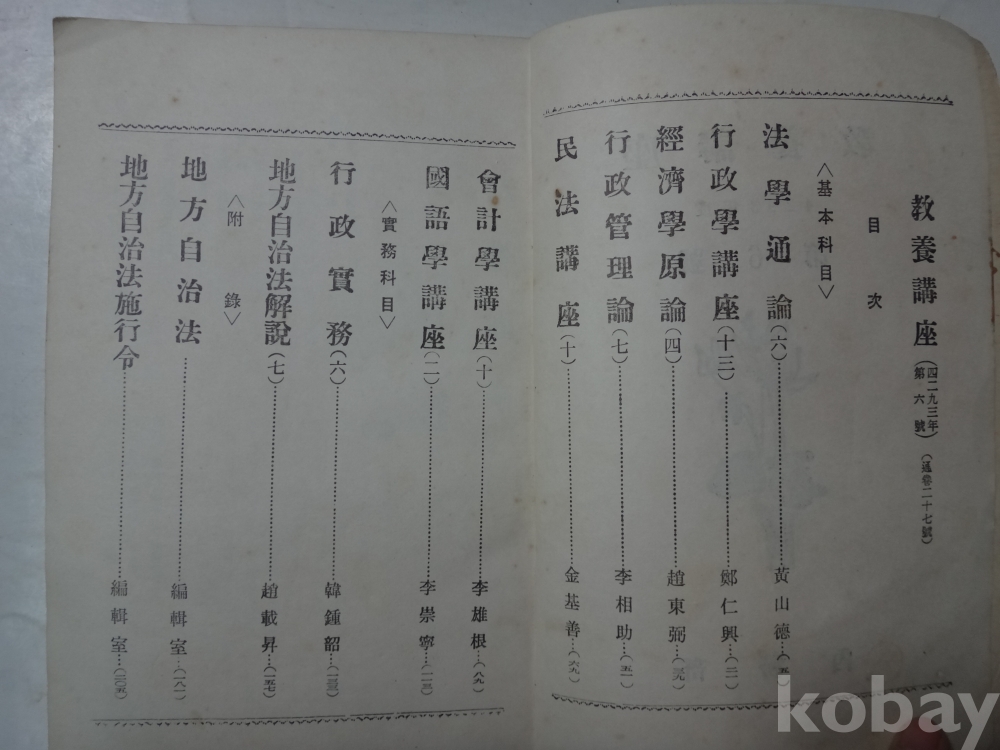 教養講座(四二九三年 第六號)(通卷二十七號)
目次
〈基本科目〉
法學通論(六)……黃山德…(五)
行政學講座(十三)……鄭仁興…(二一)
經濟學原論(四)……趙東弼…(三九)
行政管理論(七)……李相助…(五一)
民法講座(十)……金基善…(六九)
會計學講座(十)……李雄根…(八九)
國語學講座(二)……李崇寧…(一一三)
〈實務科目〉
行政實務(六)……韓鍾韶…(一三三)
地方自治法解說(七)……趙載昇…(一五七)
〈附錄〉
地方自治法……編輯室…(一八一)
地方自治法施行令……編輯室…(二〇五)
kobay